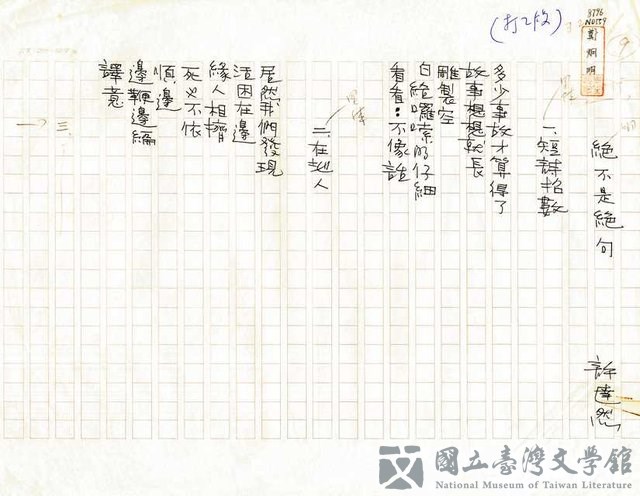 8796
N0559
葉炯明
(打2份)
絕不是絕句
許達然
一、短詩招數
多少事故才算得了
故事想想就長
雕製空
白給囉嗦的仔細
看看:不像話
二、在地人
居然我們發現
活困在邊
緣人相擠
死必不依
順邊
邊鞭邊編
譯意
國立臺灣文學館
National Museum of Taiwan Literature